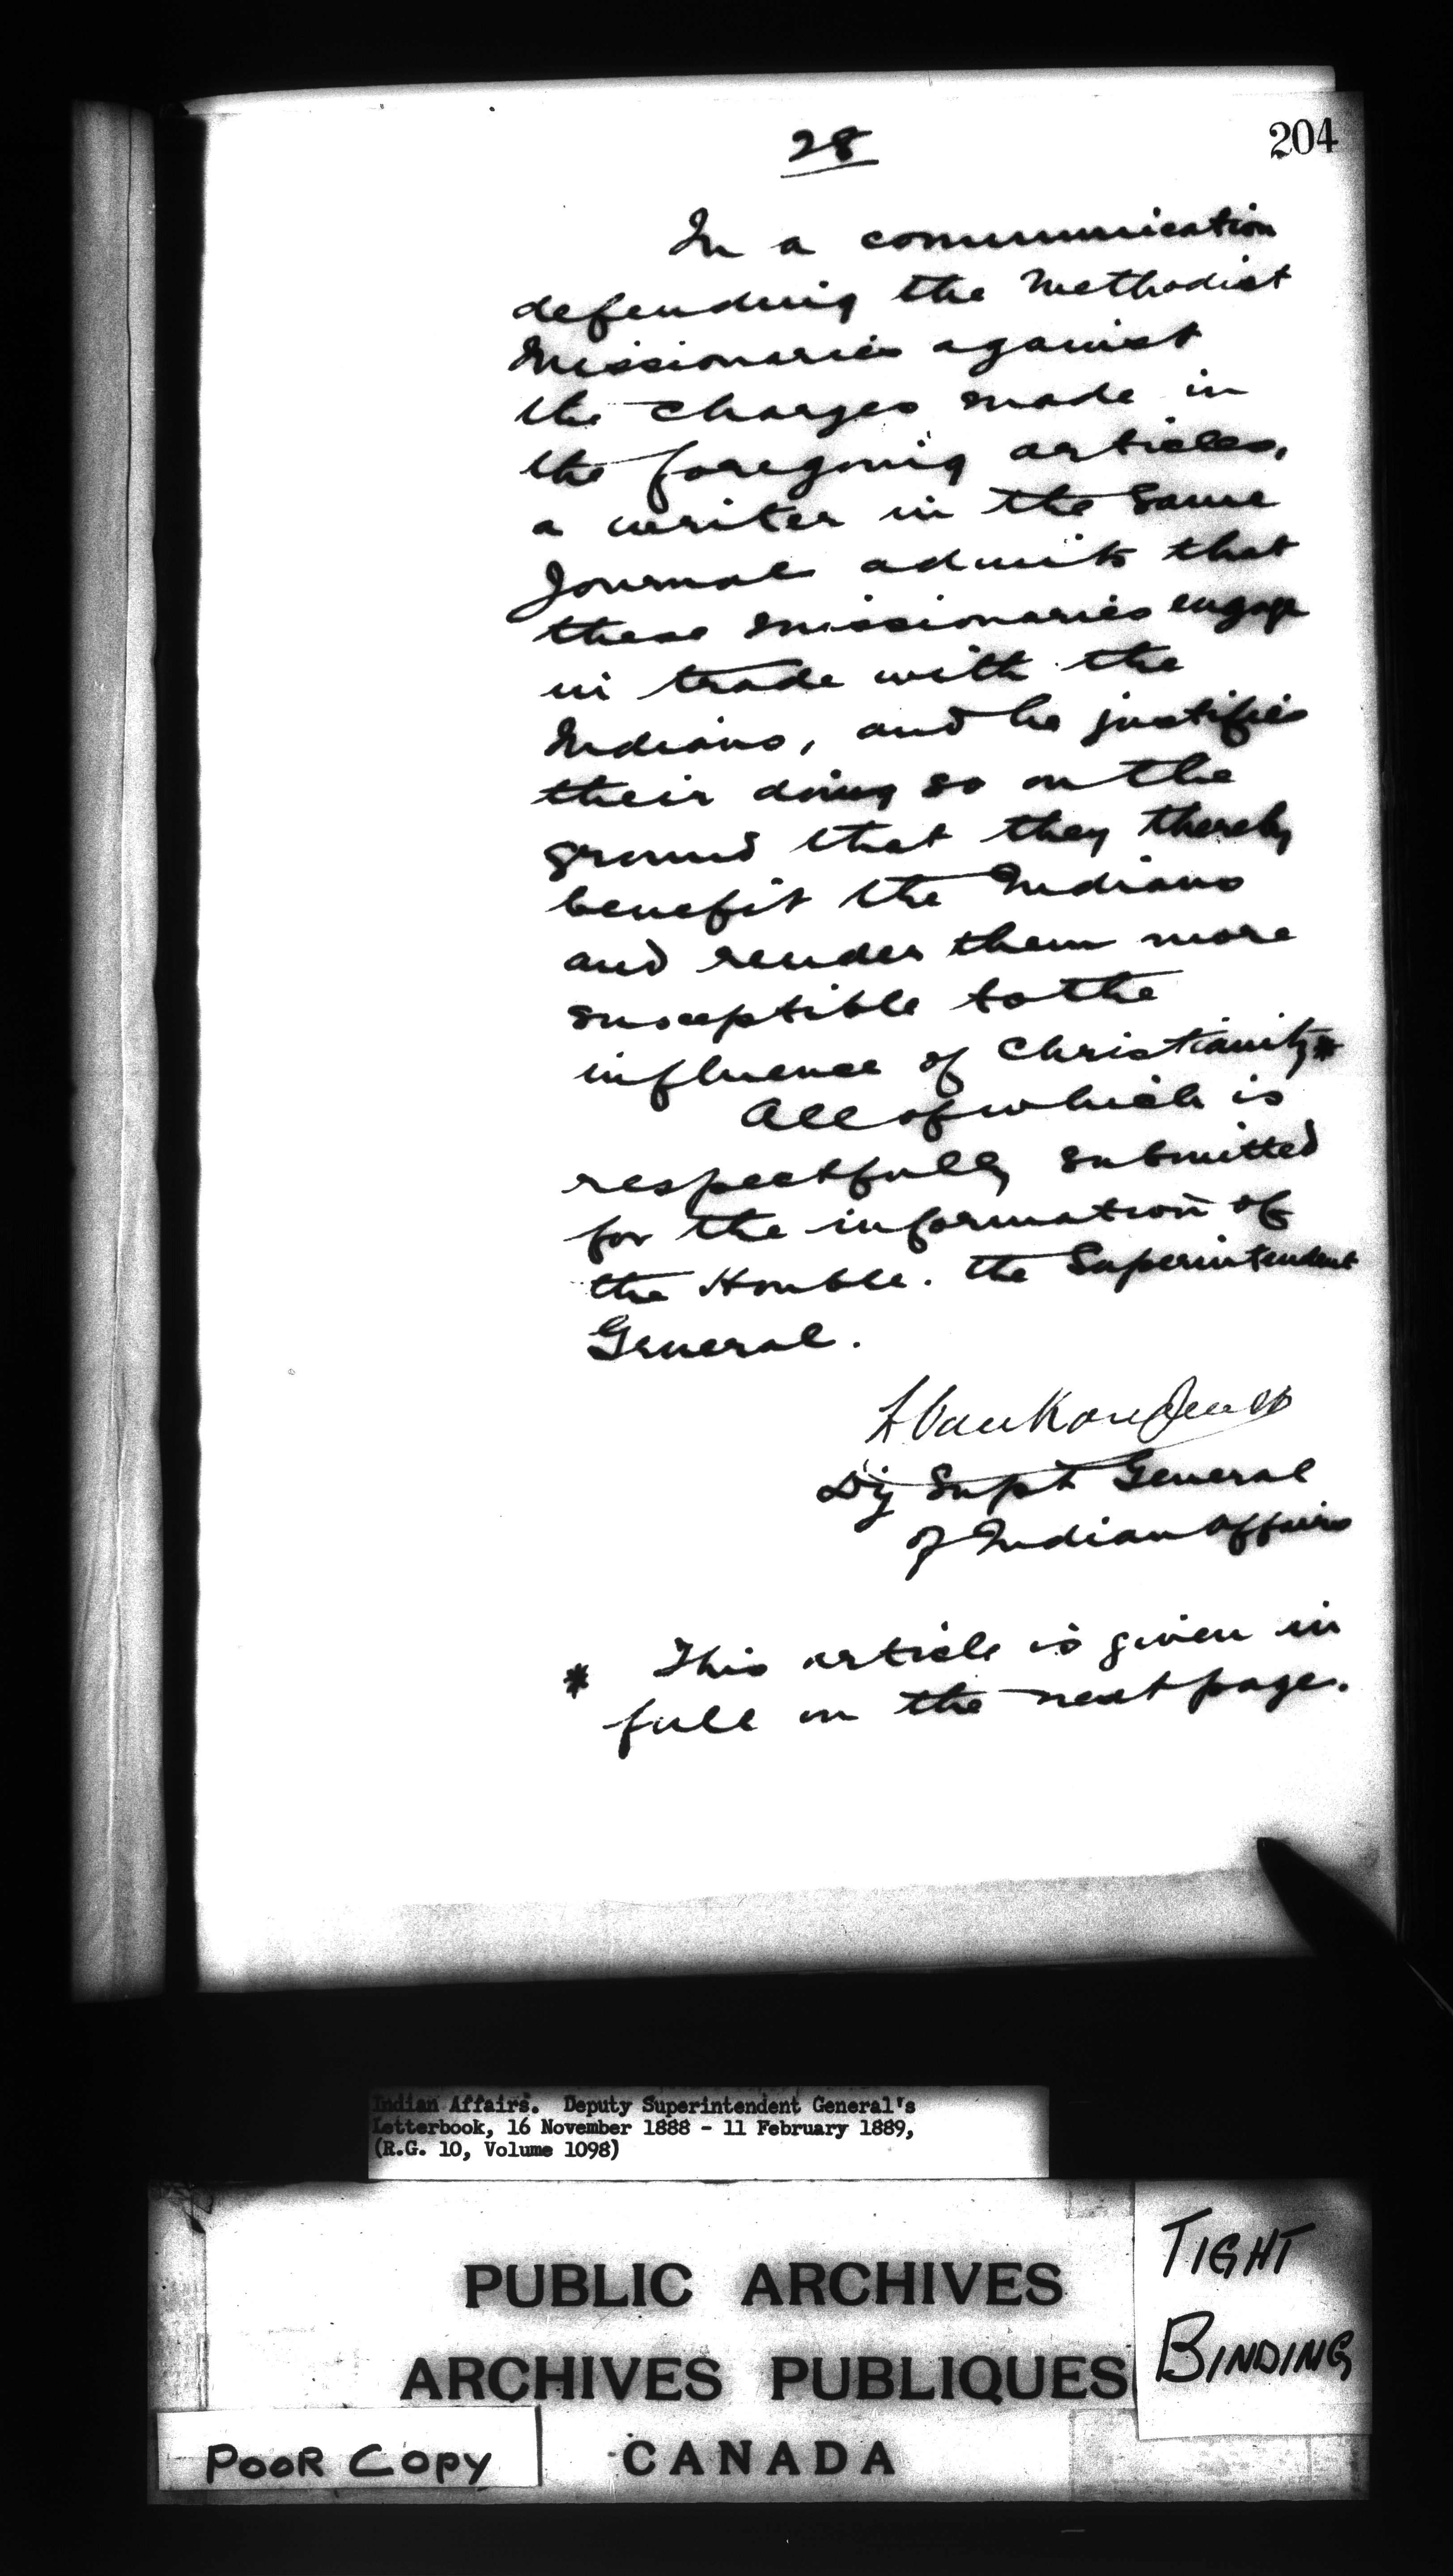 28
204
In a communication
defending the Methodist
Missionaries against
the charges made in
the foregoing articles,
a writer in the same
Journal admits that
these missionaries engage
in trade with the
Indians, and he justifies
their doing so on the
ground that they thereby
benefit the Indians
and render them more
susceptible to the
influence of Christianity*
All of which is
respectfully submitted
for the information of
the Honble. the Superintendent
General.
L Vankoughnet
Dy Supt General
of Indian Affairs
* This article is given in
full on the next page.
Indian Affairs. Deputy Superintendent General's
Letterbook, 16 November 1888 - 11 February 1889,
(R.G. 10, Volume 1098)
PUBLIC ARCHIVES
ARCHIVES PUBLIQUES
CANADA
TIGHT
BINDING
POOR COPY